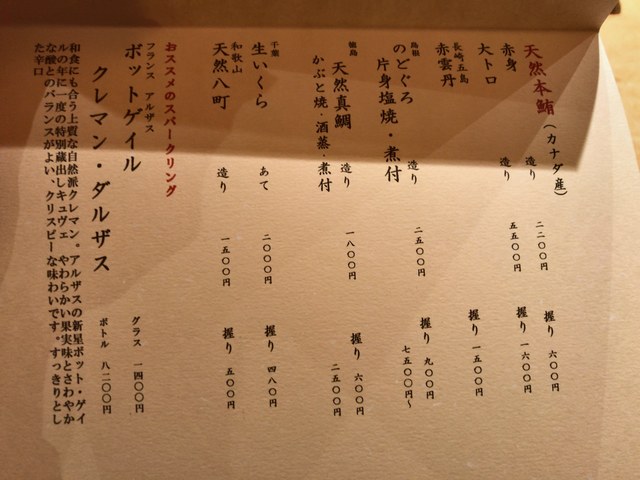 天然本鮪(カナダ産)
赤身 造り 二二〇〇円 握り 六〇〇円
大トロ 造り 五五〇〇円 握り 一六〇〇円
長崎 五島
赤雲丹 握り 一五〇〇円
島根
のどぐろ 造り 二五〇〇円 握り 九〇〇円
片身塩焼・煮付 七五〇〇円〜
徳島
天然真鯛 造り 一八〇〇円 握り 六〇〇円
かぶと焼・酒蒸・煮付 二五〇〇円
千葉
生いくら あて 二〇〇〇円 握り 四八〇円
和歌山
天然八町 造り 一五〇〇円 握り 五〇〇円
おススメのスパークリング
フランス アルザス
ボットゲイル グラス 一四〇〇円
クレマン・ダルザス ボトル 八二〇〇円
和食にも合う上質な自然派クレマン。アルザスの新星ボット・ゲイ
ルの年に一度の特別蔵出しキュヴェ やわらかい果実味とさわやか
な酸とのバランスがよい、クリスピーな味わいです。すっきりとし
た辛口